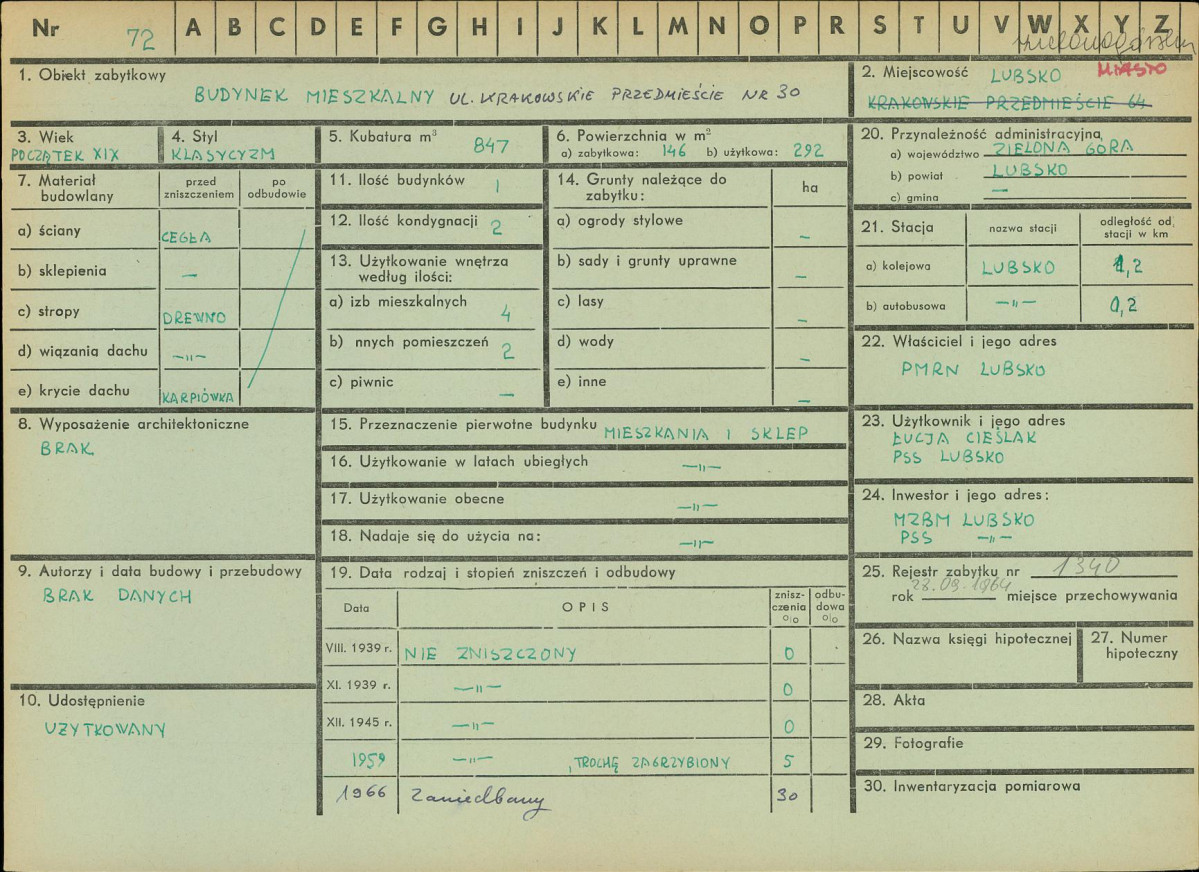 Nr 72 A B C D E F G H I J K L M N O P R S T U V W X Y Z
1. Obiekt zabytkowy
BUDYNEK MIESZKALNY UL. KRAKOWSKIE PRZEDMIEŚCIE NR 30
2. Miejscowość LUBSKO MIASTO
KRAKOWSKIE PRZEDMIEŚCIE 64
3. Wiek
POCZĄTEK XIX
4. Styl
KLASYCYZM
5. Kubatura m³ 847
6. Powierzchnia w m²
a) zabytkowa: 146 b) użytkowa: 292
20. Przynależność administracyjna
a) województwo ZIELONA GÓRA
b) powiat LUBSKO
c) gmina —
7. Materiał budowlany
przed zniszczeniem
po odbudowie
a) ściany CEGŁA
b) sklepienia —
c) stropy DREWNO
d) wiązania dachu —"—
e) krycie dachu KARPIÓWKA
11. Ilość budynków 1
12. Ilość kondygnacji 2
13. Użytkowanie wnętrza
według ilości:
a) izb mieszkalnych 4
b) nnych pomieszczeń 2
c) piwnic —
14. Grunty należące do
zabytku:
ha
a) ogrody stylowe —
b) sady i grunty uprawne —
c) lasy —
d) wody —
e) inne —
21. Stacja
nazwa stacji
odległość od
stacji w km
a) kolejowa LUBSKO 1,2
b) autobusowa —"— 0,2
22. Właściciel i jego adres
PMRN LUBSKO
8. Wyposażenie architektoniczne
BRAK
15. Przeznaczenie pierwotne budynku MIESZKANIA I SKLEP
16. Użytkowanie w latach ubiegłych —"—
17. Użytkowanie obecne —"—
18. Nadaje się do użycia na: —"—
23. Użytkownik i jego adres
ŁUCJA CIEŚLAK
PSS LUBSKO
24. Inwestor i jego adres:
MZBM LUBSKO
PSS —"—
9. Autorzy i data budowy i przebudowy
BRAK DANYCH
19. Data rodzaj i stopień zniszczeń i odbudowy
Data
OPIS
znisz-
czenia
o|o
odbu-
dowa
o|o
VIII. 1939 r. NIE ZNISZCZONY 0
XI. 1939 r. —"— 0
XII. 1945 r. —"— 0
1959 —"— , TROCHĘ ZAGRZYBIONY 5
1966 Zaniedbany 30
25. Rejestr zabytku nr 1340
rok 28.09.1964 miejsce przechowywania
26. Nazwa księgi hipotecznej
27. Numer
hipoteczny
10. Udostępnienie
UZYTKOWANY
28. Akta
29. Fotografie
30. Inwentaryzacja pomiarowa